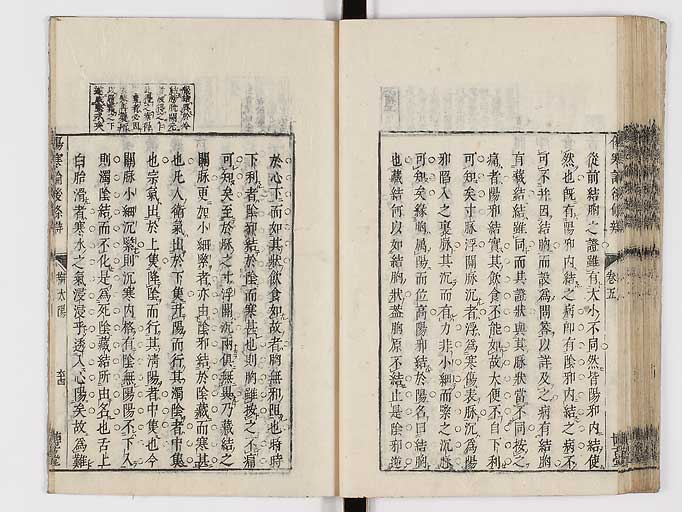 從前結胸之證雖有大小不同然皆陽邪內結使
然也既有陽邪內結之病即有陰邪內結之病不
可不并因結胸而設為問答以詳及之病有結胸
有藏結結雖同而其證狀與其脈狀當不同按之
痛者陽邪結實其飲食不能如故大便不自下利
可知矣寸脈浮關脈沉者浮為寒傷表脈沉為陽
邪陷入之裏脈其沉而有力非小細而緊之沉
可知矣緣胸屬陽而位高陽邪結於陽名曰結胸
也藏結何以如結胸狀蓋胸原不結止是陰邪逆
卷五
於心下而如其狀飲食如故者胸無和但也時時
下利者陰邪結於陰而寒甚也則胸雖按之不痛
可知矣至於脈之寸浮關沉兩俱無異乃藏結之
關脈更加小細緊者亦由陰邪結於陰藏而寒甚
也凡人衛氣出於下焦升陽而行其濁陰者中焦
也宗氣出於上焦降陰而行其清陽者中焦也今
關脈小細沉緊則沉寒內格有陰無陽陽不下入
則濁陰結而不化是為死陰藏結所由名也舌上
白胎滑者寒水之氣浸浸乎透入心陽矣故為難
傷寒論後條辨
太陽